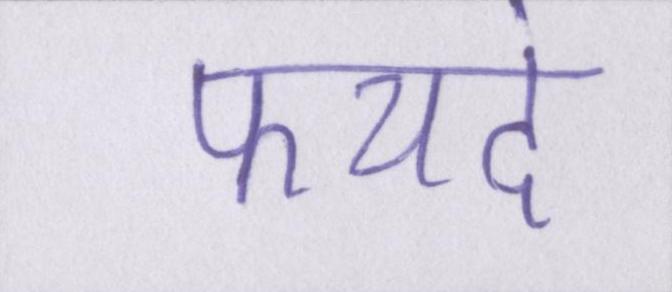 फयदं